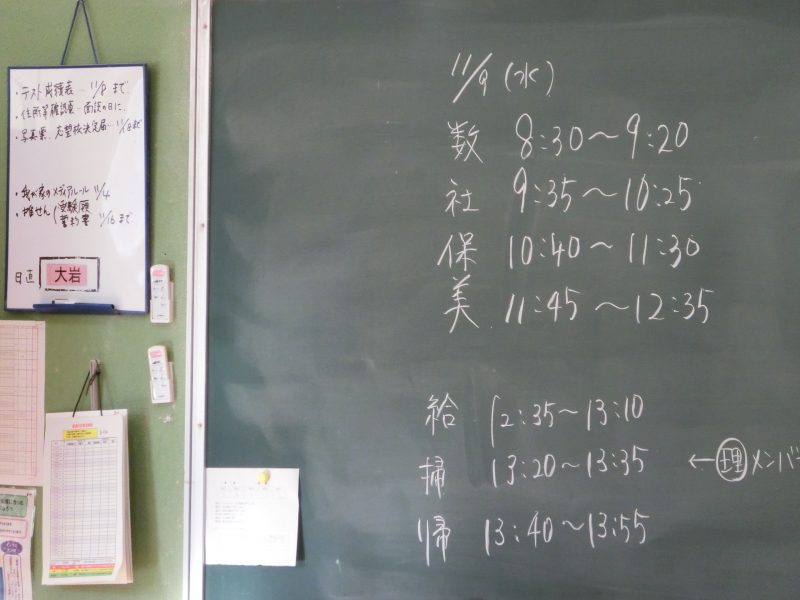 ・テスト成績表… 11/8 まで
・住所等確認票…面談の日に
・写真票、志望校決定届…11/18まで
・我が家のメディアルール 11/4
・推せん(受験願
誓約書 11/16 まで
日直 大岩
11/9 (水)
数 8:30〜9:20
社 9:35〜10:25
保 10:40〜11:30
美 11:45〜12:35
給 12:35〜13:10
掃 13:20〜13:35 ←理メンバ
帰 13:40〜13:55